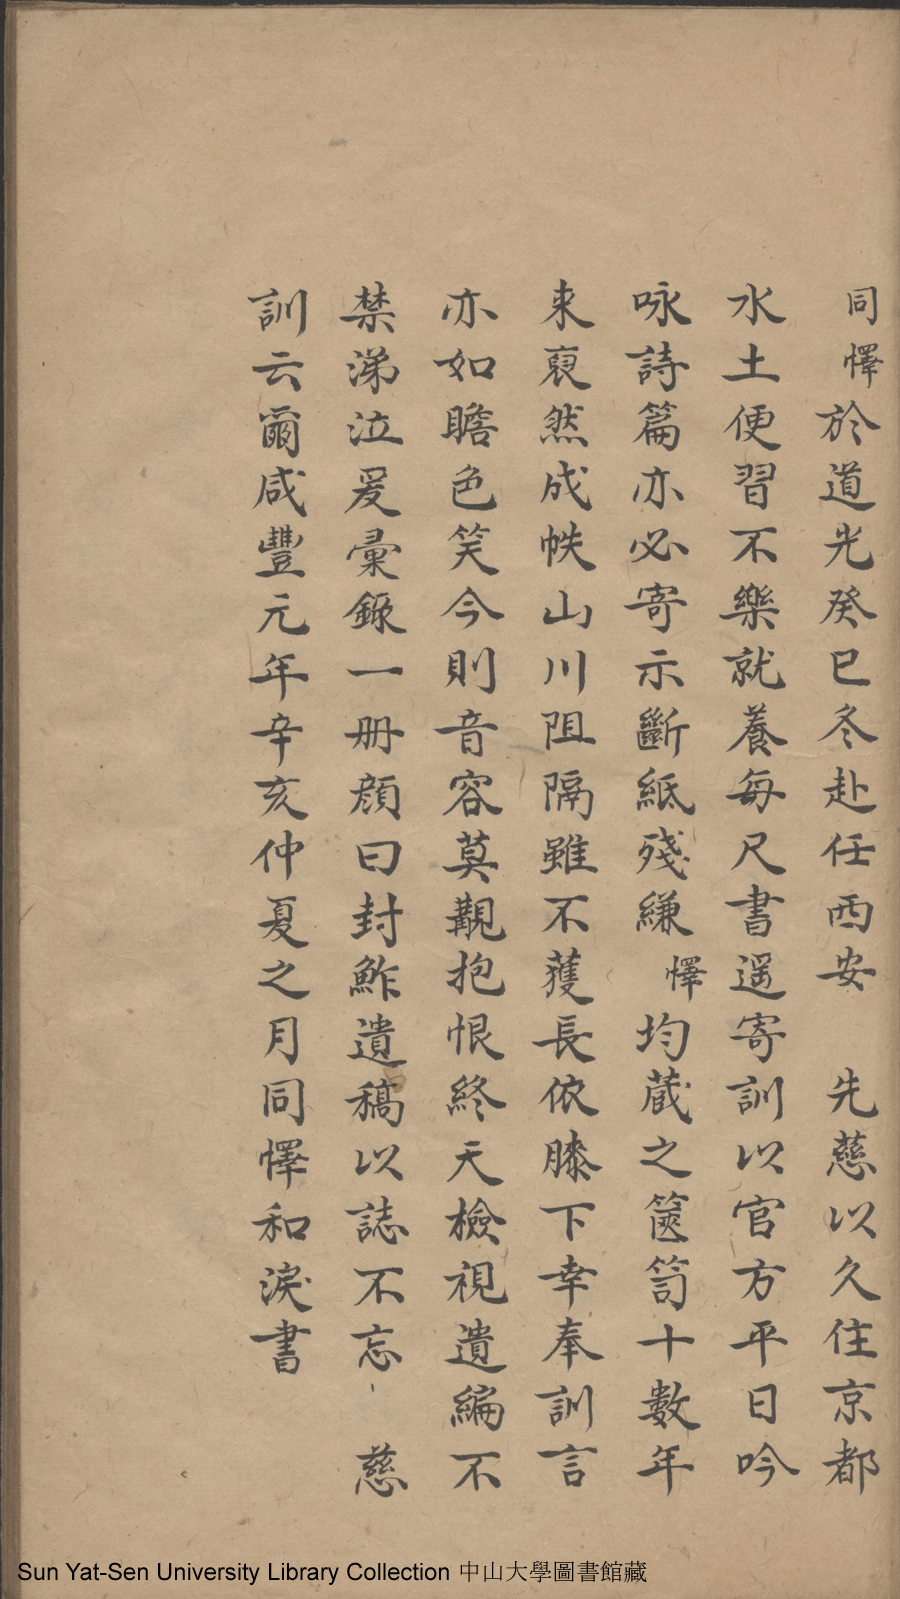 同懌於道光癸巳冬赴任西安　先慈以久住京都
水土便習不樂就養每尺書遥寄訓以官方平日吟
咏詩篇亦必寄示斷紙殘縑懌均蔵之篋笥十數年
来裒然成帙山川阻隔雖不獲長依膝下幸奉訓言
亦如瞻色笑今則音容莫覯抱恨終天檢視遺編不
禁涕泣爰彙錄一册顔曰封鮓遺稿以誌不忘　慈
訓云爾咸豐元年辛亥仲夏之月同懌和淚書
Sun Yat-Sen University Library Collection 中山大學圖書館藏